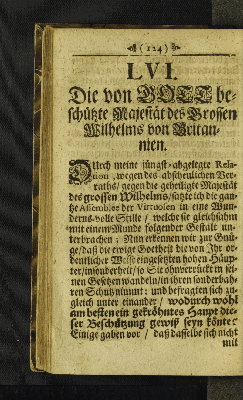 (124)
LVI.
Die von GOTT be-
schützte Majestät des Grossen
Wilhelms von Britan-
nien.
DUrch meine jüngst-abgelegte Rela-
tion, wegen des abscheulichen Ver-
raths/ gegen die geheiligte Majestät
des grossen Wilhelms/ satzte ich die gan-
tze Assemblée der Virtuosen in eine Wun-
derns-volle Stille/ welche sie gleichsahm
mit einem Munde folgender Gestalt un-
terbrachen: Nun erkennen wir zur Gnü-
ge/ daß die ewige Gottheit die von Ihr or-
dentlicher Weise eingesetzten hohen Häup-
ter/ insonderheit/ so Sie ohnverrückt in sei-
nen Gesetzen wandeln/ in ihren sonderbah-
ren Schutz nimmt: und befragten sich zu-
gleich unter einander/ wodurch wohl
am besten ein gekröhntes Haupt die-
ser Beschützung gewiß seyn könte?
Einige gaben vor/ daß dasselbe sich nicht
mit